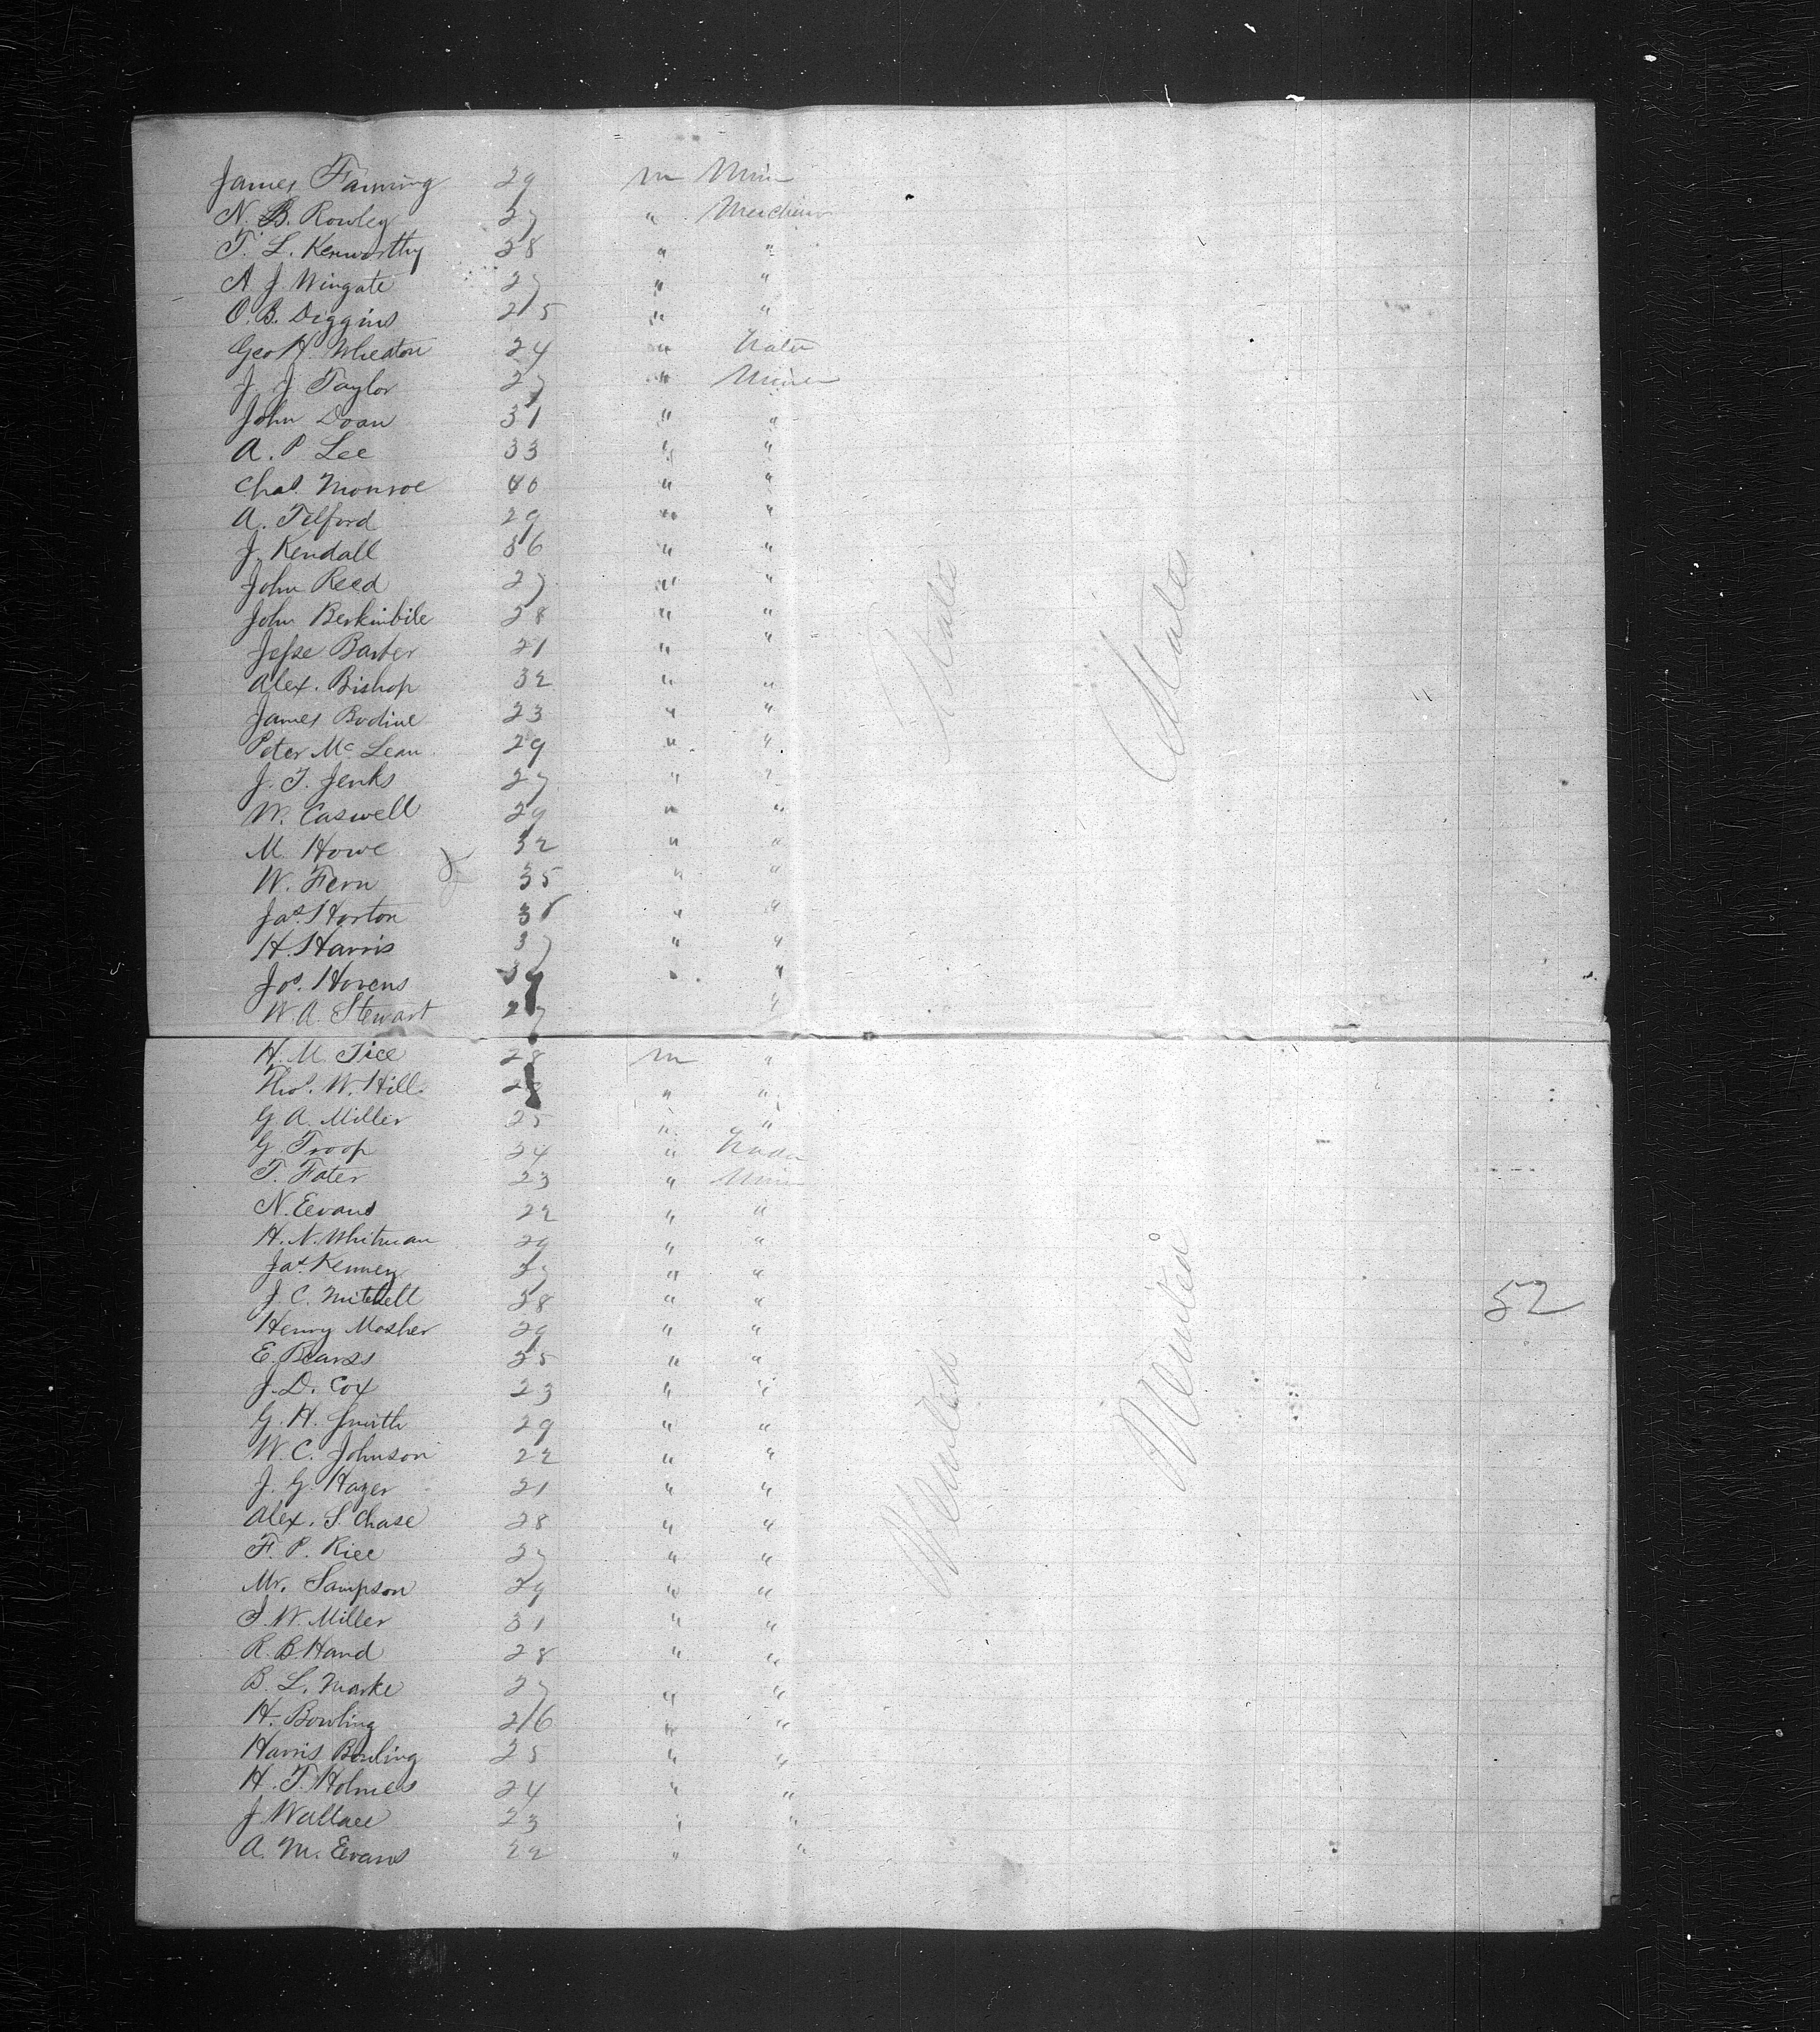 James Fanning 29 m Min
N. B. Rowley 27 " Merchant
T. L. Kenworthy 38 " "
A J Wingate 27 " "
O. B. Diggins 25 " "
Geo H. Wheaton 24 "
J. J Taylor 27 " Miner
John Doan 31 " "
A. P Lee 33 " "
Chas. Monroe 40 " "
A. Tilford 29 " "
J. Kendall 36 " "
John Reed 27 " "
John Berkinbile 38 " "
Jesse Barber 21 " "
Alex. Bishop 32 " "
James Bodine 23 " "
Peter Mc Lean 29 " "
J. T. Jenks 27 " "
W. Caswell 29 " "
M. Howe 32 " "
W. Fern 35 " "
Jas. Horton " "
H. Harris 37 " "
Jos. Hovens " "
W. A. Stewart 27 "
H. M. Tice 28 m "
Thos. W. Hill 28 " "
G. A. Miller 25 " "
G. Troop 24 "
T. Fater 23 " Min
N. Eevans 22 " "
H. N. Whitman 29 " "
Jas Kenney " "
J. C. Mitchell 38 " "
Henry Mosher 29 " "
E. Bearss 35 " "
J. D. Cox 23 " "
G. H. Smith 29 " "
W. C. Johnson 22 " "
J. G. Hazer 21 " "
Alex. S. Chase 28 " "
F. P. Rice 27 " "
Mr. Sampson 29 " "
J. W. Miller 31 " "
R. B. Hand 28 " "
B. L. Marke 27 " "
H. Bowling 26 " "
Harris Bowling 25 " "
H. T. Holmes 24 " "
J Wallace 23 " "
A. M. Evans 22 " "
United State
United States
52